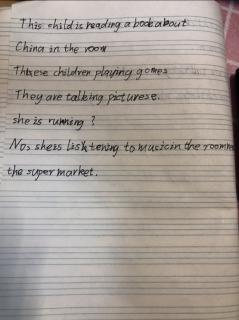 This child is reading a book about
China in the room
These children playing games
They are talking picturese.
she is running ?
No, sheis lishtening to musicin the room
the supermarket.